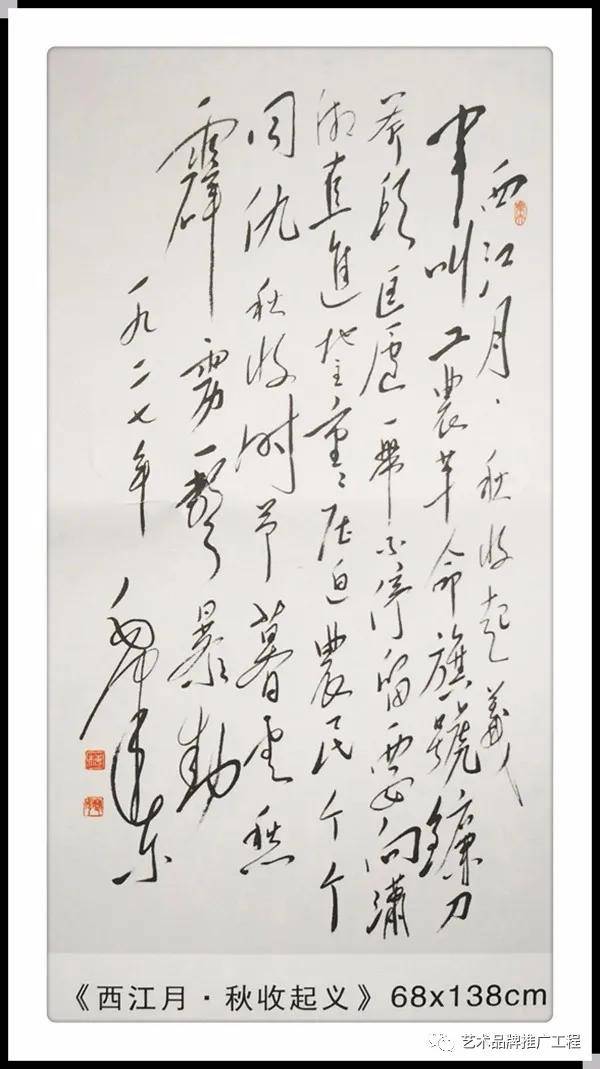 西江月·秋收起義
軍叫工農革命旗號鐮刀
斧頭匡廬一帶不停留要向瀟
湘直進地主重〻压迫農民个个
同仇秋收时节暮雲愁
霹靂一聲暴動
一九二七年 毛澤东
《西江月·秋收起义》68x138cm
艺术品牌推广工程